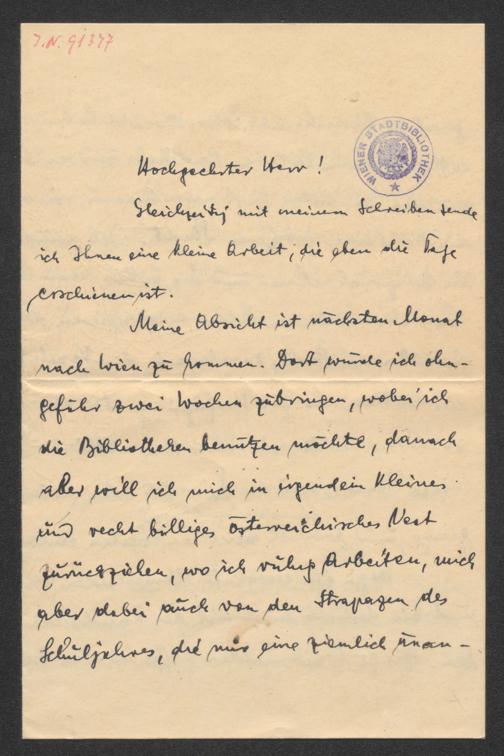 J.N. 91377
WIENER STADTBIBLIOTHEK
Hochgeehrter Herr!
Gleichzeitig mit meinem Schreiben sende
ich Ihnen eine kleine Arbeit, die eben die Tage
erschienen ist.
Meine Absicht ist nächsten Monat
nach Wien zu kommen. Dort würde ich ohn-
gefähr zwei Wochen zubringen, wobei ich
die Bibliotheken benützen möchte, danach
aber will ich mich in irgendein kleines
und recht billiges österreichisches Nest
zurückziehen, wo ich ruhig arbeiten, mich
aber dabei auch von den Strapazen des
Schuljahres, die mir eine ziemlich unan-